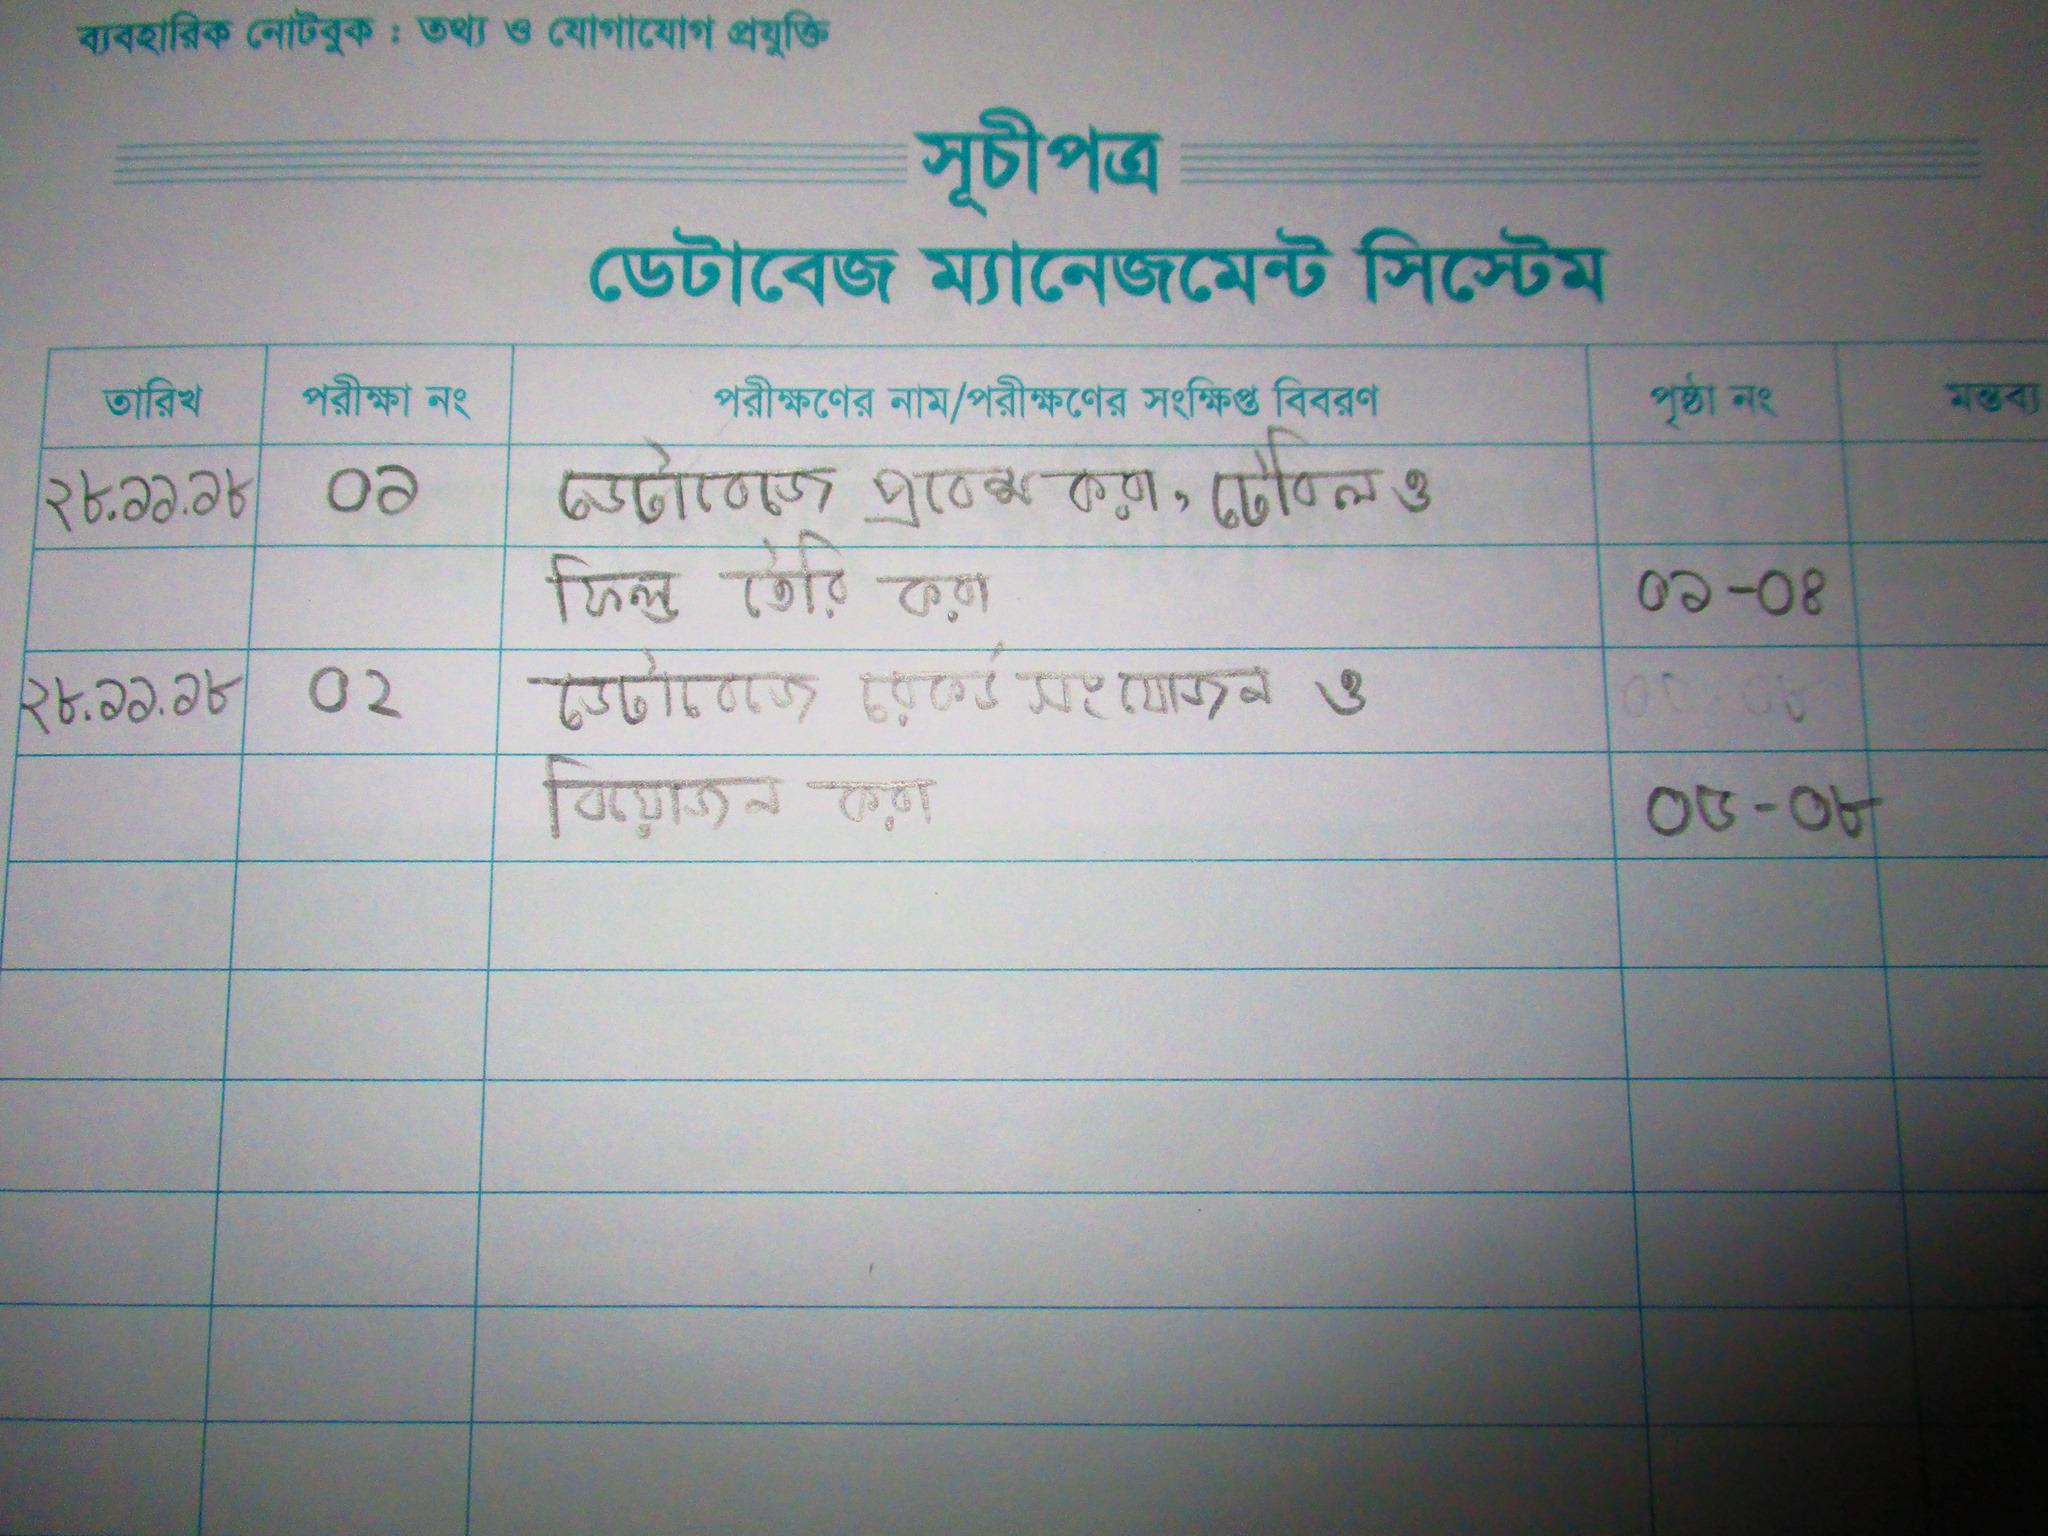 ব্যবহারিক নোটবুক : তথ্য ও যোগাযোগ প্রযুক্তি
সূচীপত্র
ডেটাবেজ ম্যানেজমেন্ট সিস্টেম
তারিখ পরীক্ষা নং পরীক্ষণের নাম/পরীক্ষণের সংক্ষিপ্ত বিবরণ পৃষ্ঠা নং মন্তব্য
২৮.১১.১৮ ০১ ডেটাবেজে প্রবেশ করা, টেবিল ও
ফিল্ড তৈরি করা ০১-০৪
২৮.১১.১৮ ০২ ডেটাবেজে রেকর্ড সংযোজন ও
বিয়োজন করা ০৫-০৮